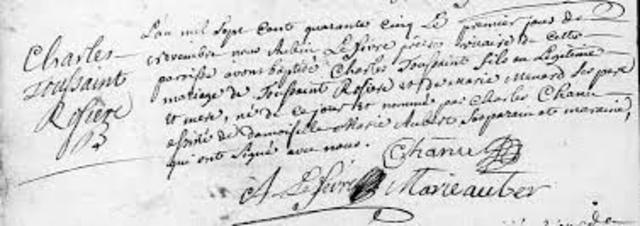 Charles
Toussaint
Rosiere
L'an mil sept cent quarante cinq Le premier jour de
novembre nous Aubin Lefivre pretre vicaire de cette
parroisse avons baptisé Charles Toussaint fils en Legitime
mariage de Toussaint Rosiere et de Marie Menard ses pere
et mere, né de ce jour et nommé par Charles Chanu
assisté de Damoiselle Marie Aubert ses parain et maraine,
qui ont signé avec nous.
Chanu
A Lefivre Marie auber